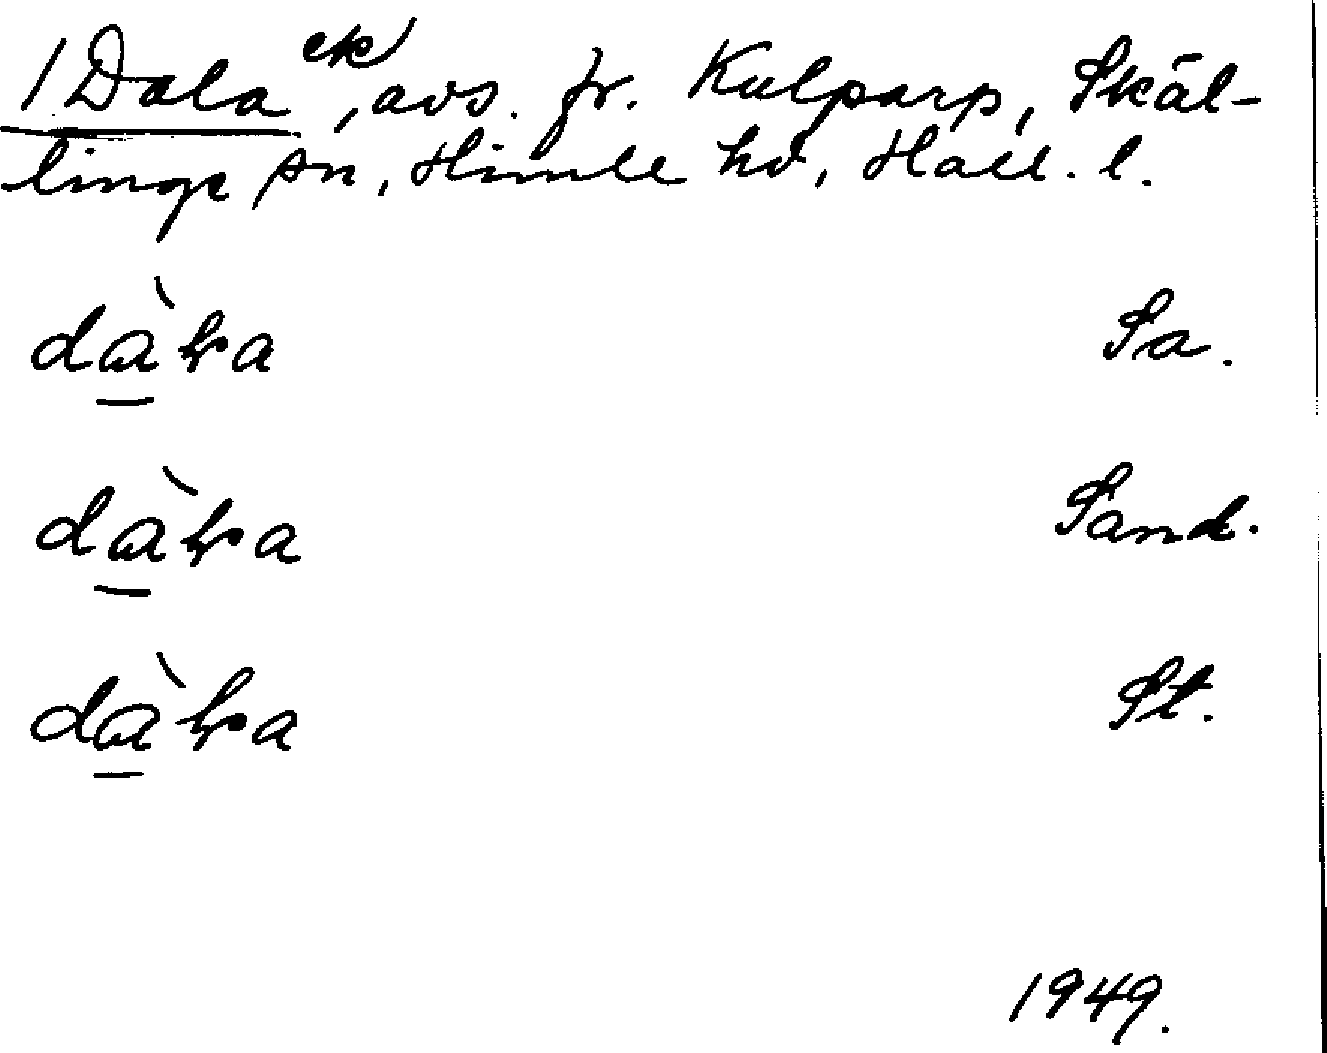 1 Dala ek, avs. fr. Kulparp, Skäl-
linge sn, Himle hd, Hall. l.
dàɽa Sa.
dàɽa Sand.
dàɽa St.
1949.